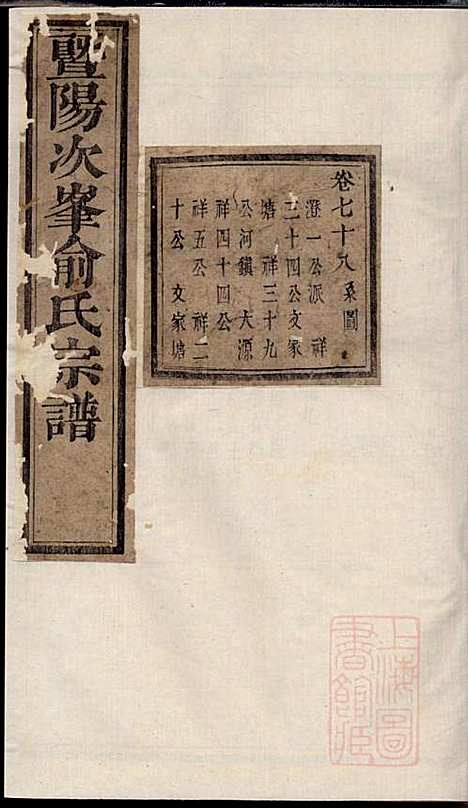 暨陽次峯俞氏宗譜
卷七十八系圖
澄一公派 祥
三十四公文家
塘 祥三十九
公河鎮 大源
祥四十四公
祥五公 祥二
十公 文家塘
上海圖
書館藏